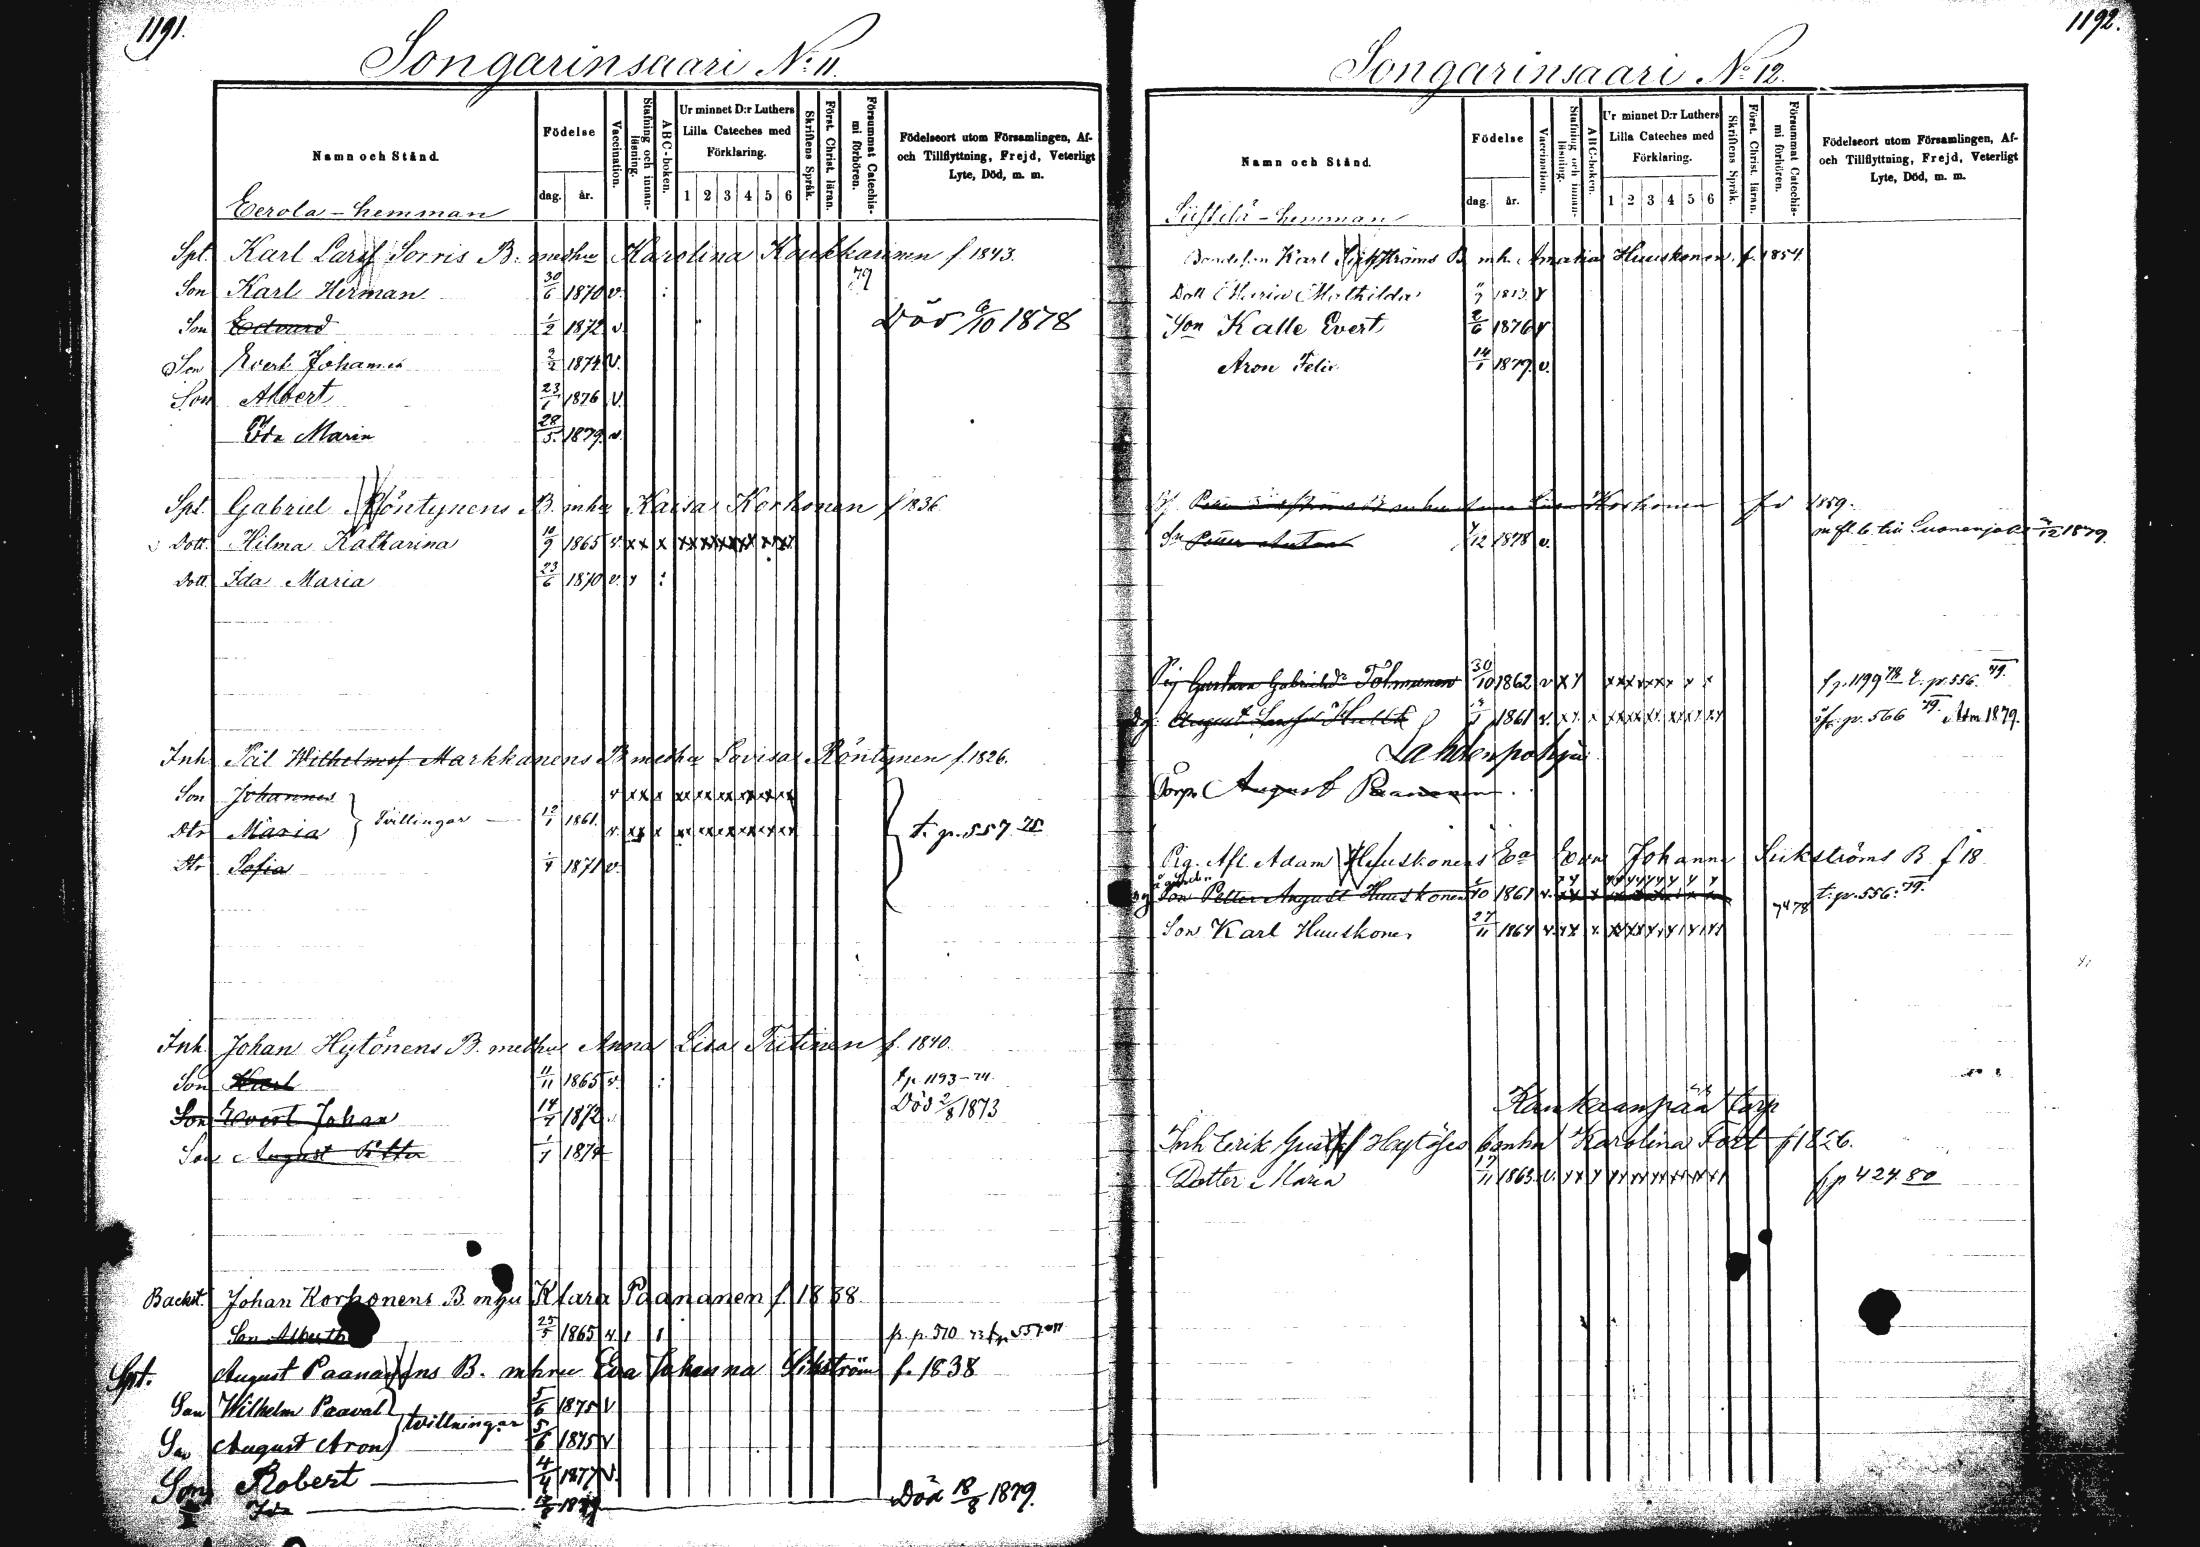 1191.
Songarinsaari No. 11.
Namn och Stånd.
Födelse
dag. år.
Vaccination.
Stafning och innan-läsning.
ABC-boken.
Ur minnet D:r Luthers
Lilla Cateches med
Förklaring.
1 2 3 4 5 6
Skriftens Språk.
Först. Christ. läran.
Försummat Catechis-mi förhören.
Födelseort utom Församlingen, Af-
och Tillflyttning, Frejd, Veterligt
Lyte, Död, m. m.
Eerola-hemman
Spt. Karl Larsf Sorris B. medhu Karolina Koukkarinen f 1843.
Son Karl Herman 30/6 1870 v. 79
Son Edvard 1/2 1872 v. Död 9/10 1878
Son Evert Johannes 2/2 1874 v.
Son Albert 23/1 1876 v.
Ida Maria 28/5 1879. v.
Spt. Gabriel Pöntynens B. mhu Kaisa Korhonen f 1836
Dott. Hilma Katharina 10/9 1865 v. xx x
Dott. Ida Maria 23/6 1870 v.
Inh. Pål Wilhelmsf Markkanens B medhu Lovisa Pöntynen f. 1826.
Son Johannes v xx x
Tvillingar 12/1 1861.
Dtr Maria v. xx x t. p. 557 75
Dtr Sofia 1/4 1871 v.
Inh. Johan Hytönens B. medhu Anna Lisa Tutinen f. 1840.
Son Karl 11/11 1865 v. t p. 1193-74.
Son Evert Johan 14/7 1872 Död 2/8 1873
Son August Petter 1/1 1874
Backst. Johan Korhonens B. mhu Klara Paananen f. 1838
Son Alberth 25/5 1865 v. fr. p. 510 73
Spt. August Paananens B. mhru Eva Johanna Sikström f. 1838
Son Wilhelm Paaval 5/6 1875 v
tvillningar
Son August Aron 5/6 1875 v
Son Robert 4/4 1877 v.
Ida Död 18/8 1879.
1192.
Songarinsaari No. 12.
Namn och Stånd.
Födelse
dag. år.
Vaccination.
Stafning och innan-läsning.
ABC-boken.
Ur minnet D:r Luthers
Lilla Cateches med
Förklaring.
1 2 3 4 5 6
Skriftens Språk.
Först. Christ. läran.
Försummat Catechis-mi förhören.
Födelseort utom Församlingen, Af-
och Tillflyttning, Frejd, Veterligt
Lyte, Död, m. m.
Siistilä-hemman
Bondeson Karl Sikströms B mh. Amalia Huuskonen. f. 1854
Dott Maria Mathilda v
Son Kalle Evert 2/6 1876 v
Aron Felix 14/1 1879. v.
Korhonen fd 1859.
Sn Petter Anton /12 1878 v. m fl. b. till Suonenjoki /12 1879.
Pig Gustava Gabrielsdr Tolmunen 30/10 1862 v x x f p. 1199 78 t. p. 556. 79.
Dg. August Larsf 1861 v. p. 566 79. Attm 1879.
Lahdenpohja
Torp. August Paananen
Pig. Afl Adam Huuskonens Ea Eva Johanna Siikströms B f 18
Dg Son Petter August Huuskonen /10 1861 v. 7478 t. p. 556. 79.
Son Karl Huuskonen 27/11 1864 v.
Kankaanpää torp
Inh Erik Gustf Hytönens bmhu Karolina Fört f 1826.
Dotter Maria 17/11 1863 v. f p 424. 80